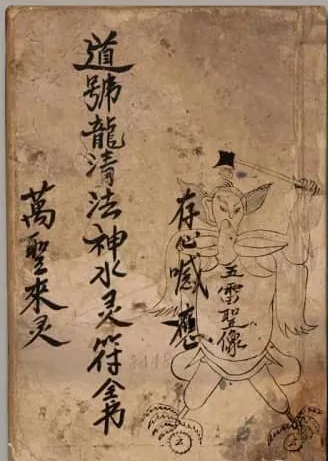 五雷聖像
存心應
道號龍清法神水灵符全书
萬聖來灵